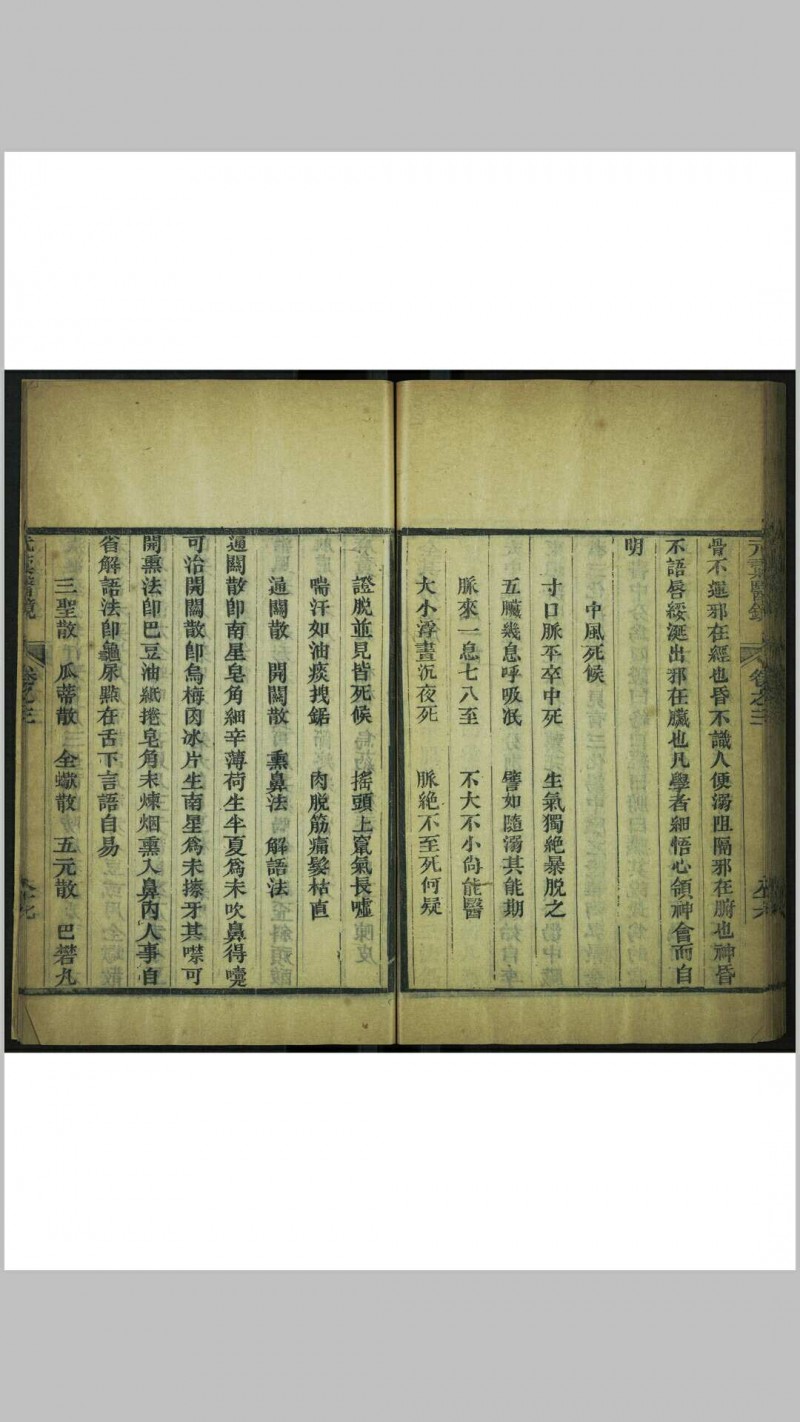 骨不運邪在經也昏不識人便溺阻隔邪在腑也神昏
不語唇緩涎出邪在臟也凡學者細悟心領神會而自
明
中風死候
寸口脈平卒中死　生氣獨絕暴脫之
五臟幾息呼吸泯　譬如隨溺其能期
脈來一息七八至　不大不小尚能醫
大小浮晝沉夜死　脈絕不至死何疑
證脫並見皆死候　搖頭上竄氣長噓
喘汗如油痰拽鋸　肉脫筋痛髮枯直
通關散　開關散　熏鼻法　解語法
通關散即南星皂角細辛薄荷生半夏為末吹鼻得嚏
可治開關散即烏梅肉冰片生南星為末擦牙其噤可
開熏法即巴豆油紙捲皂角末煉烟熏入鼻內人事自
省解語法即龜尿點在舌下言語自易
三聖散　瓜蒂散　全蠍散　五元散　巴礬丸
卷之三